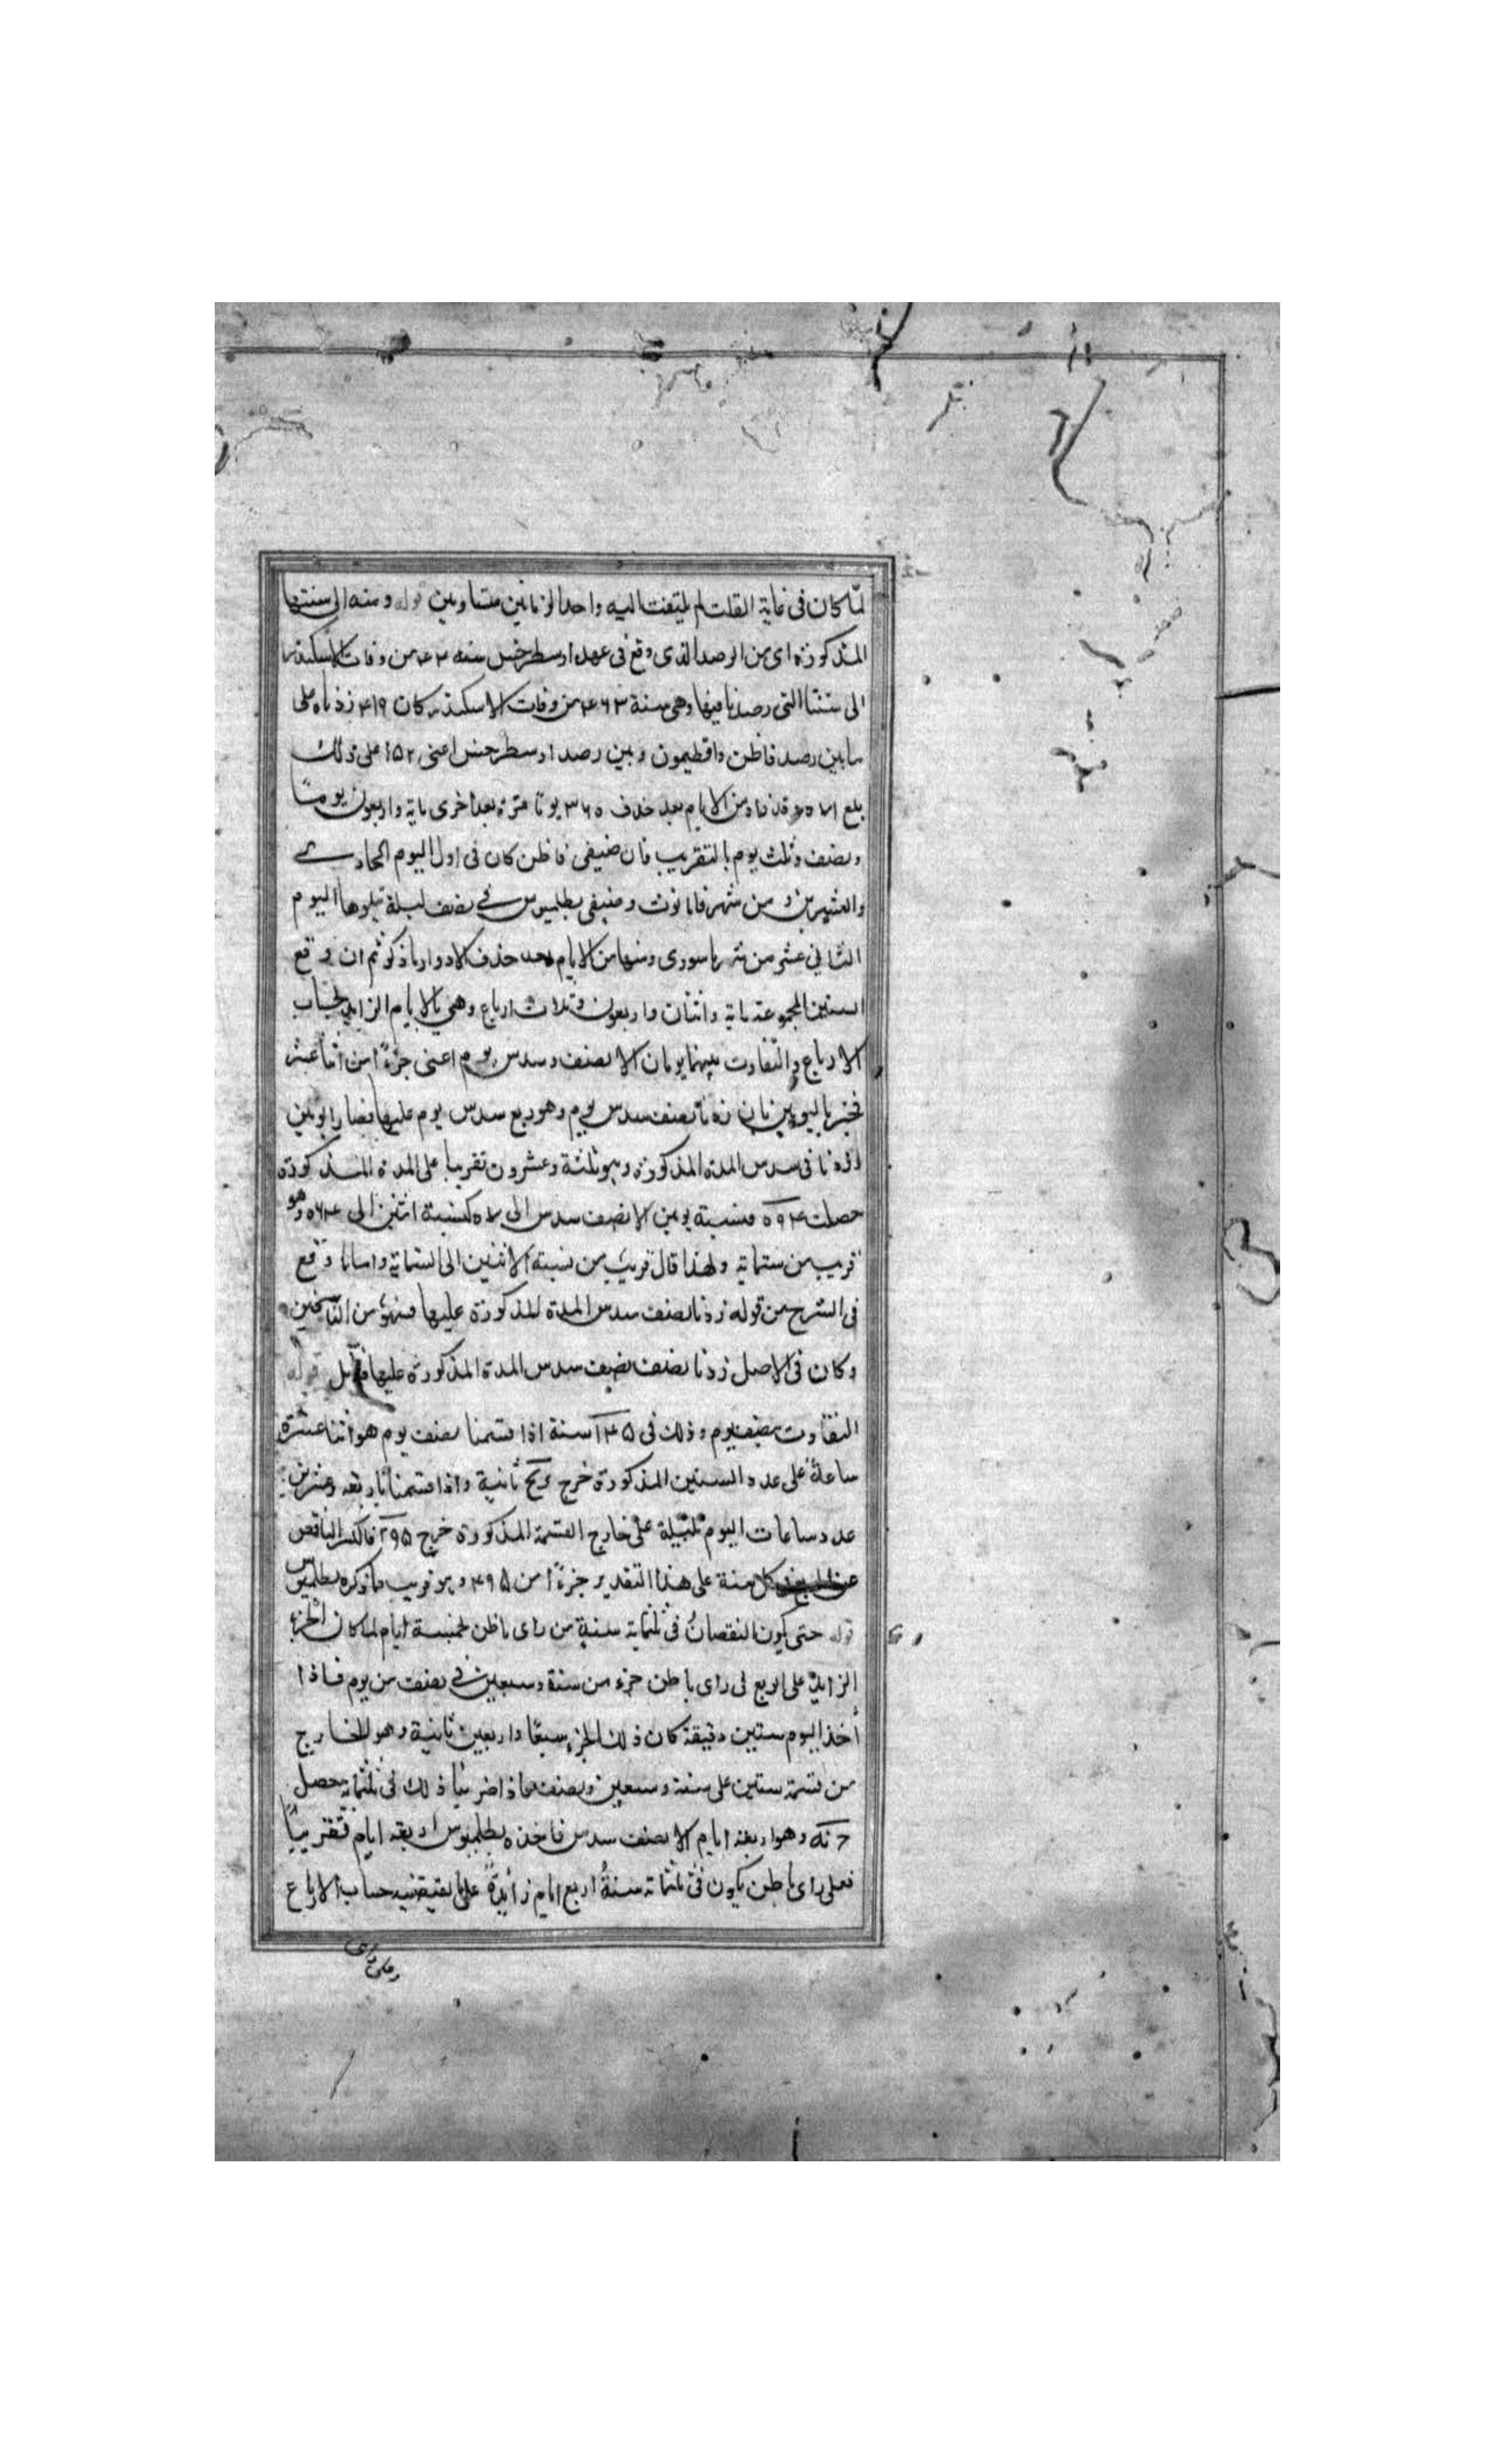 لمّا كان فى غاية القلت لم يلتفت اليه واخذ الزمانين متساويين قوله ومنه الى سنتها
المذكورة اى من الرصد الذى وقع فى عهد ارسطرخس سنه ۴۴ من وفات الاسكندر
الى سنتنا التى رصدنا فيها وهى سنة ۴۶۳ من وفات الاسكندر كان ۴۱۹ زدناه على
ما بين رصد فاطن واقطيمون وبين رصد ارسطرخس اعنى ۱۵۲ على ذلك
بلغ ۵۷۱ من الايام بعد حذف ۳۶۵ يوما مرة بعد اخرى ماية واربعون يوما
ونصف وثلث يوم بالتقريب فان صيفى فاطن كان فى اول اليوم الحادى
والعشرين من شهر فامانوث وصيفى بطلميوس فى نصف ليلة يتلوها اليوم
الثانى عشر من شهر ماسورى وبينهما من الايام بعد حذف الادوار ما ذكر ثم ان وقع
السنين المجموعة ماية واثنان واربعون وثلاث ارباع وهى الايام الزايدة بحساب
الارباع والتفاوت بينهما يومان الا نصف وسدس يوم اعنى جزءًا من اثنا عشر
باليومين نصف سدس يوم وهو ربع سدس يوم عليها فصار ايومين
زدنا فى سدس المدة المذكورة وهو ثلثة وعشرون تقريبا على المدة المذكورة
حصلت ۵۹۴ فنسبة يومين الا نصف سدس الى ۵۷۱ كنسبة اثنين الى وهو
قريب من ستماية ولهذا قال قريب من نسبة الاثنين الى الستماية واما ما وقع
فى الشرح من قوله زدنا نصف سدس المدة المذكورة عليها فسهو من الناسخين
وكان فى الاصل زدنا نصف نصف سدس المدة المذكورة عليها فتأمل قوله
التفاوت بنصف يوم وذلك فى سنة اذا قسمنا نصف يوم هو اثنا عشرة
ساعة على عدد السنين المذكورة خرج ثانية واذا قسمنا اربعه وعشرين
عدد ساعات اليوم بليلة على خارج القسمة المذكورة خرج فالكسر الناقص
كل سنة على هذا التقدير جزءًا من ۴۹۵ وهو قريب ما ذكره بطلميوس
قوله حتى يكون النقصان فى ثلثماية سنة من راى ماطن خمسة ايام لما كان الجزء
الزايد على الربع فى راى ماطن جزء من ستة وسبعين فى نصف من يوم فاذا
أخذ اليوم ستين دقيقة كان ذلك الجزء سبعا واربعين ثانية وهو الخارج
من قسمة ستين على ستة وسبعين ونصف فاذا ضربنا ذلك فى ثلثماية حصل
وهو اربعه ايام الا نصف سدس فاخذه بطلميوس اربعه ايام تقريبًا
فعلى راى ماطن يكون فى ثلثماته سنة اربع ايام زايدة على ما يقتضيه حساب الارباع
وعلى راى